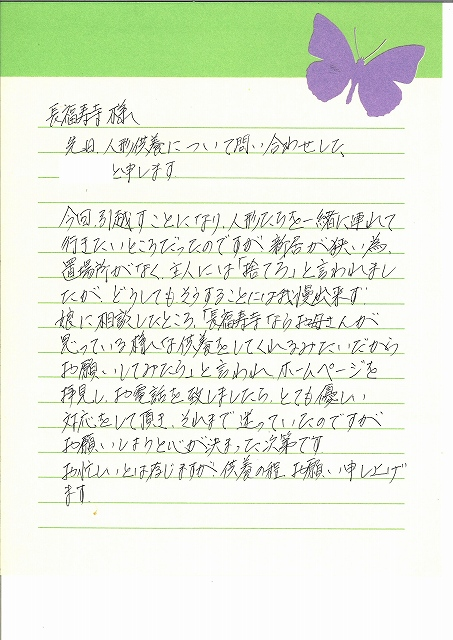 長福寿寺様へ
先日、人形供養について問い合わせした、
と申します
今回、引越すことになり、人形たちを一緒に連れて
行きたいところだったのですが、新居が狭い為、
置場所がなく、主人には「捨てろ」と言われまし
たが、どうしてもそうすることには我慢出来ず、
娘に相談したところ、「長福寿寺ならお母さんが
思っている様な供養をしてくれるみたいだから
お願いしてみたら」と言われ、ホームページを
拝見し、お電話を致しましたら、とても優しい
対応をして頂き、それまで迷っていたのですが
お願いしようと心が決まった次第です。
お忙しいとは存じますが、供養の程、お願い申し上げ
ます。